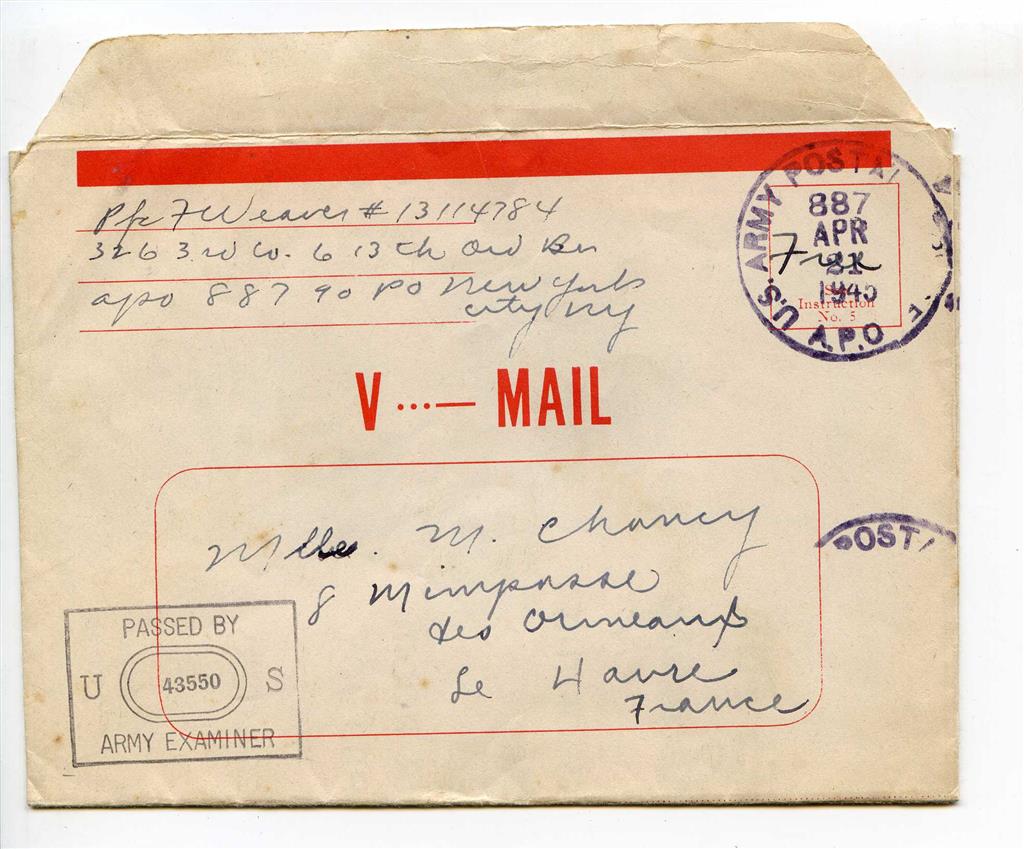 Pfc F Weaver # 13114784
326 3rd Co. 613th Ord Bn
apo 887 % PO New York
city NY
U.S. ARMY POSTAL
887
APR
21
1945
Free
See
Instruction
No. 5
A.P.O.
V ···— MAIL
POSTA
Mlle. M. Chancy
8 M impasse
des Ormeaux
Le Havre
France
PASSED BY
U 43550 S
ARMY EXAMINER